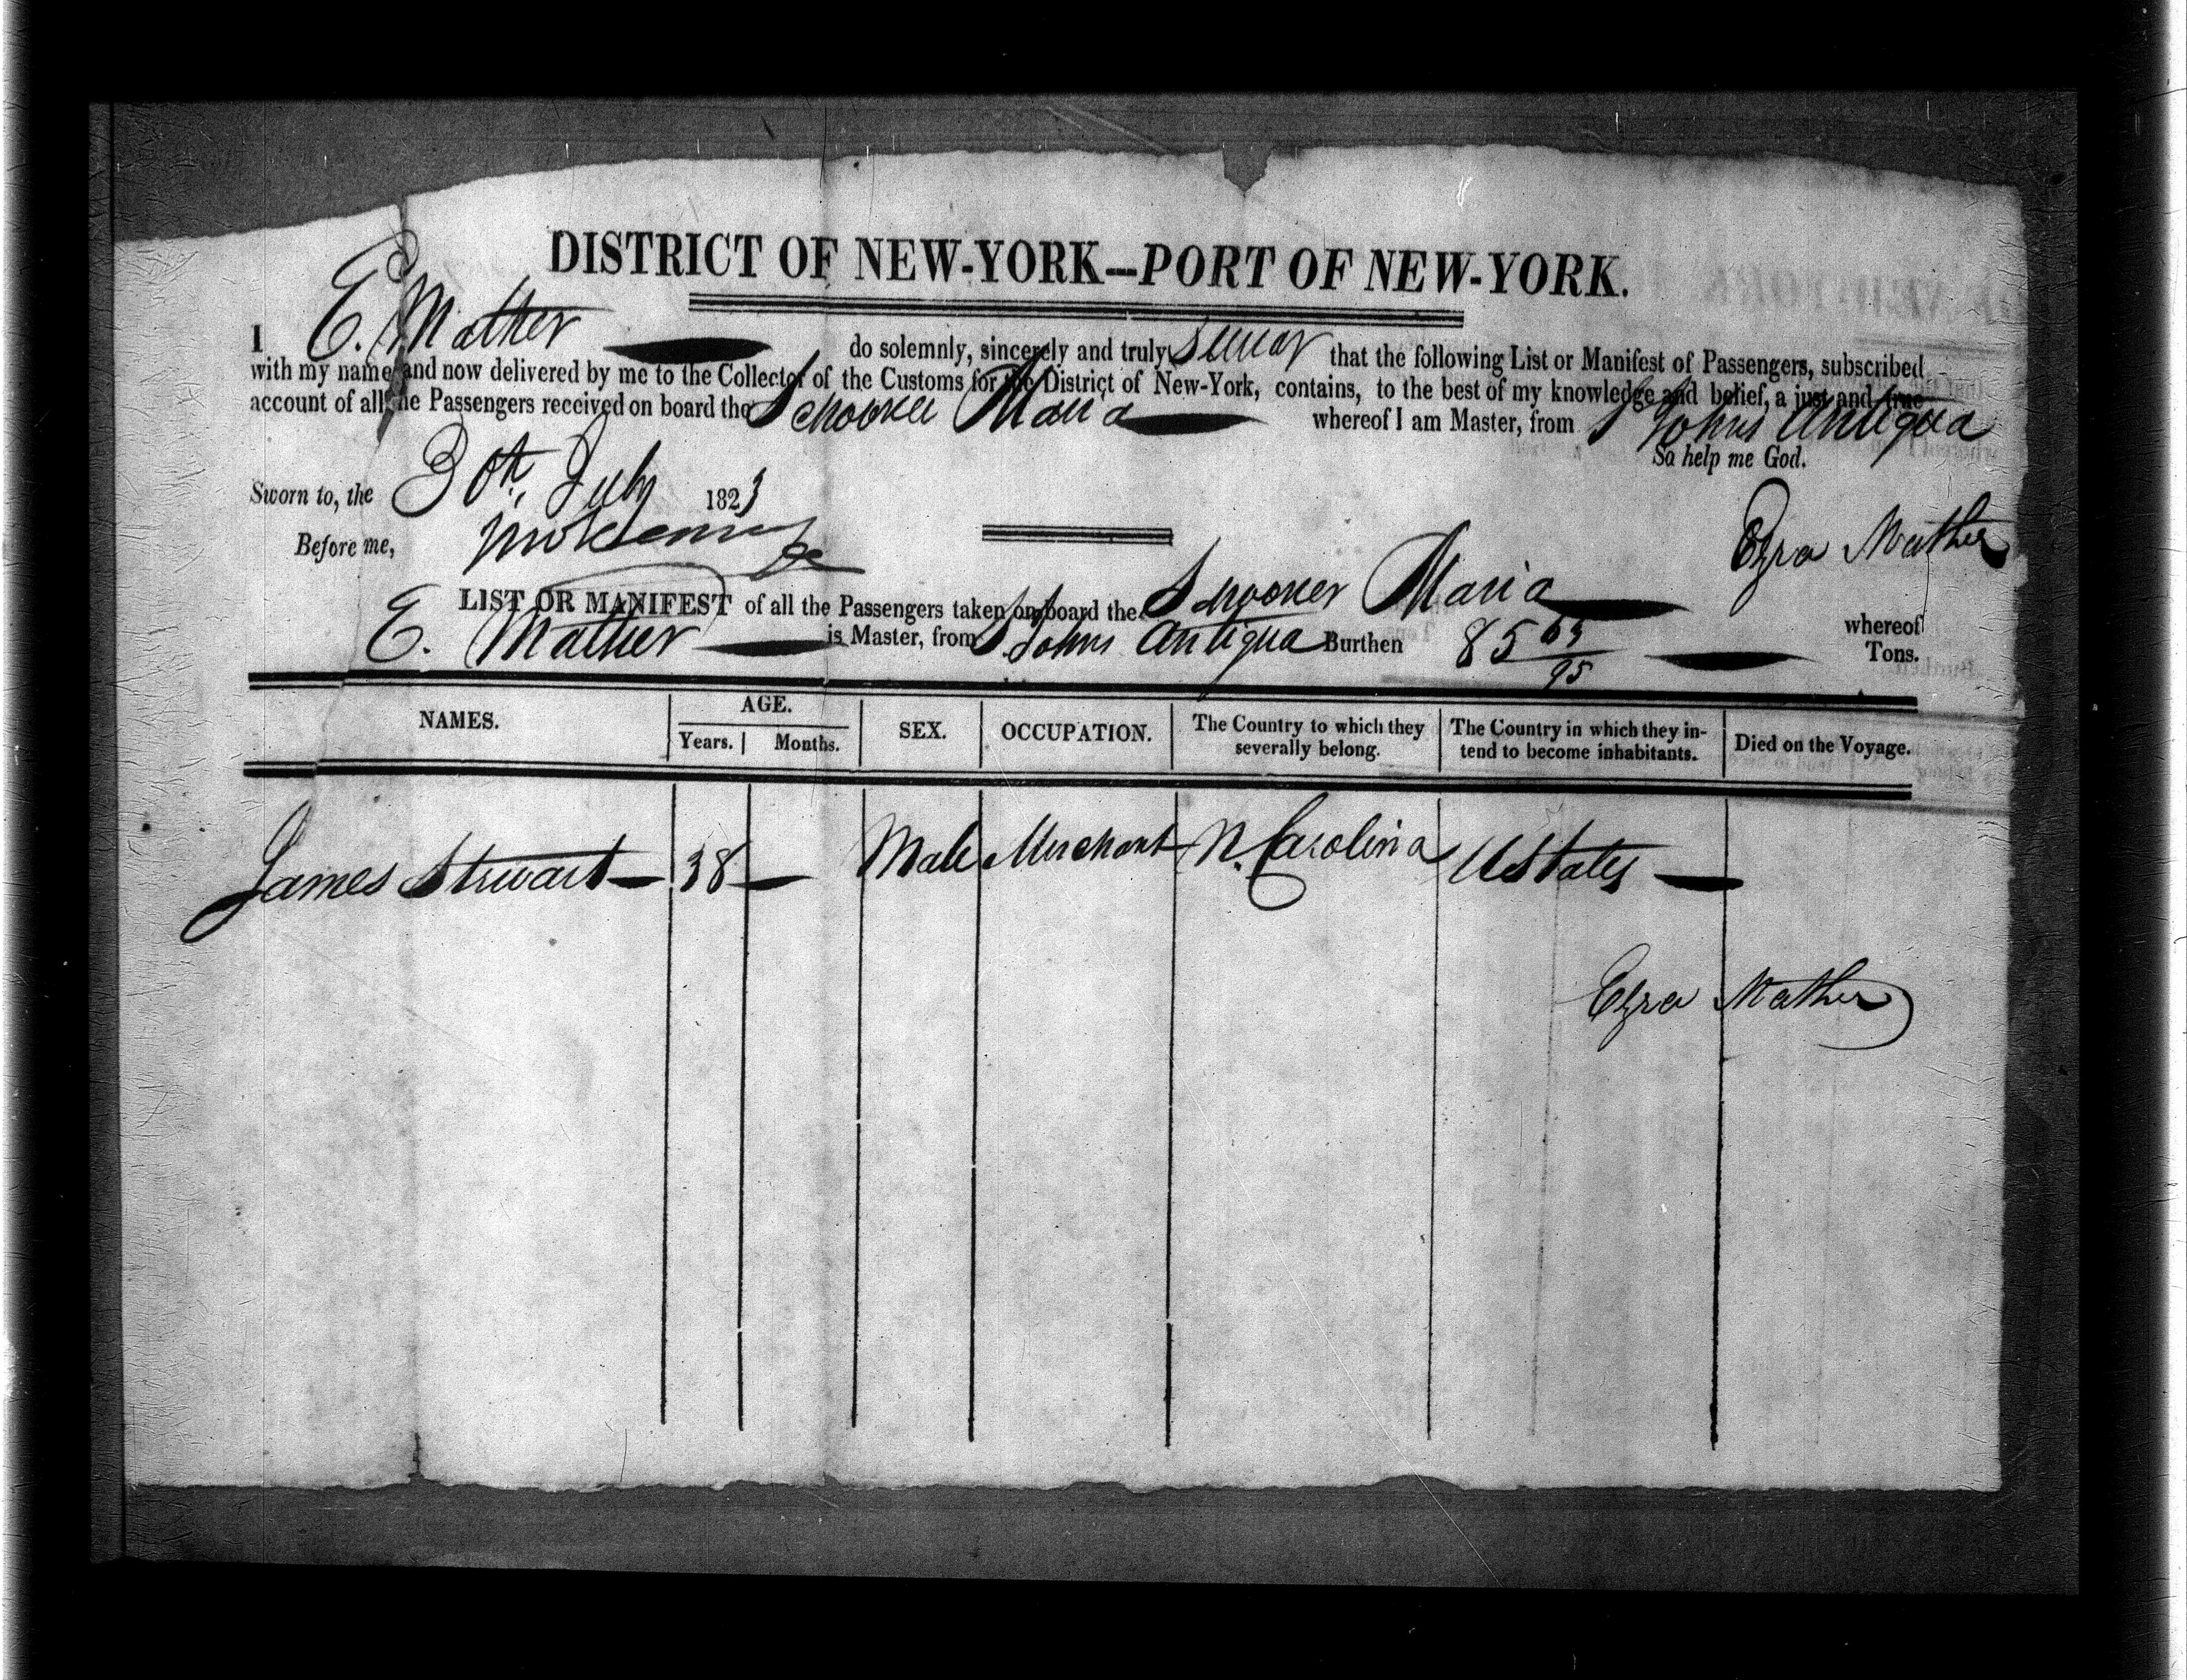 DISTRICT OF NEW-YORK—PORT OF NEW-YORK.
I E. Mather do solemnly, sincerely and truly swear that the following List or Manifest of Passengers, subscribed
with my name and now delivered by me to the Collector of the Customs for the District of New-York, contains, to the best of my knowledge and belief, a just and true
account of all the Passengers received on board the Schooner Maria whereof I am Master, from St Johns Antigua
So help me God.
Sworn to, the 30th July 1823
Ezra Mather
Before me,
LIST OR MANIFEST of all the Passengers taken on board the Schooner Maria whereof
E. Mather is Master, from St Johns Antigua Burthen 85 65/95 Tons.
NAMES. AGE. SEX. OCCUPATION. The Country to which they severally belong. The Country in which they intend to become inhabitants. Died on the Voyage.
Years. Months.
James Stewart — 38 — Male Merchant N. Carolina U States —
Ezra Mather